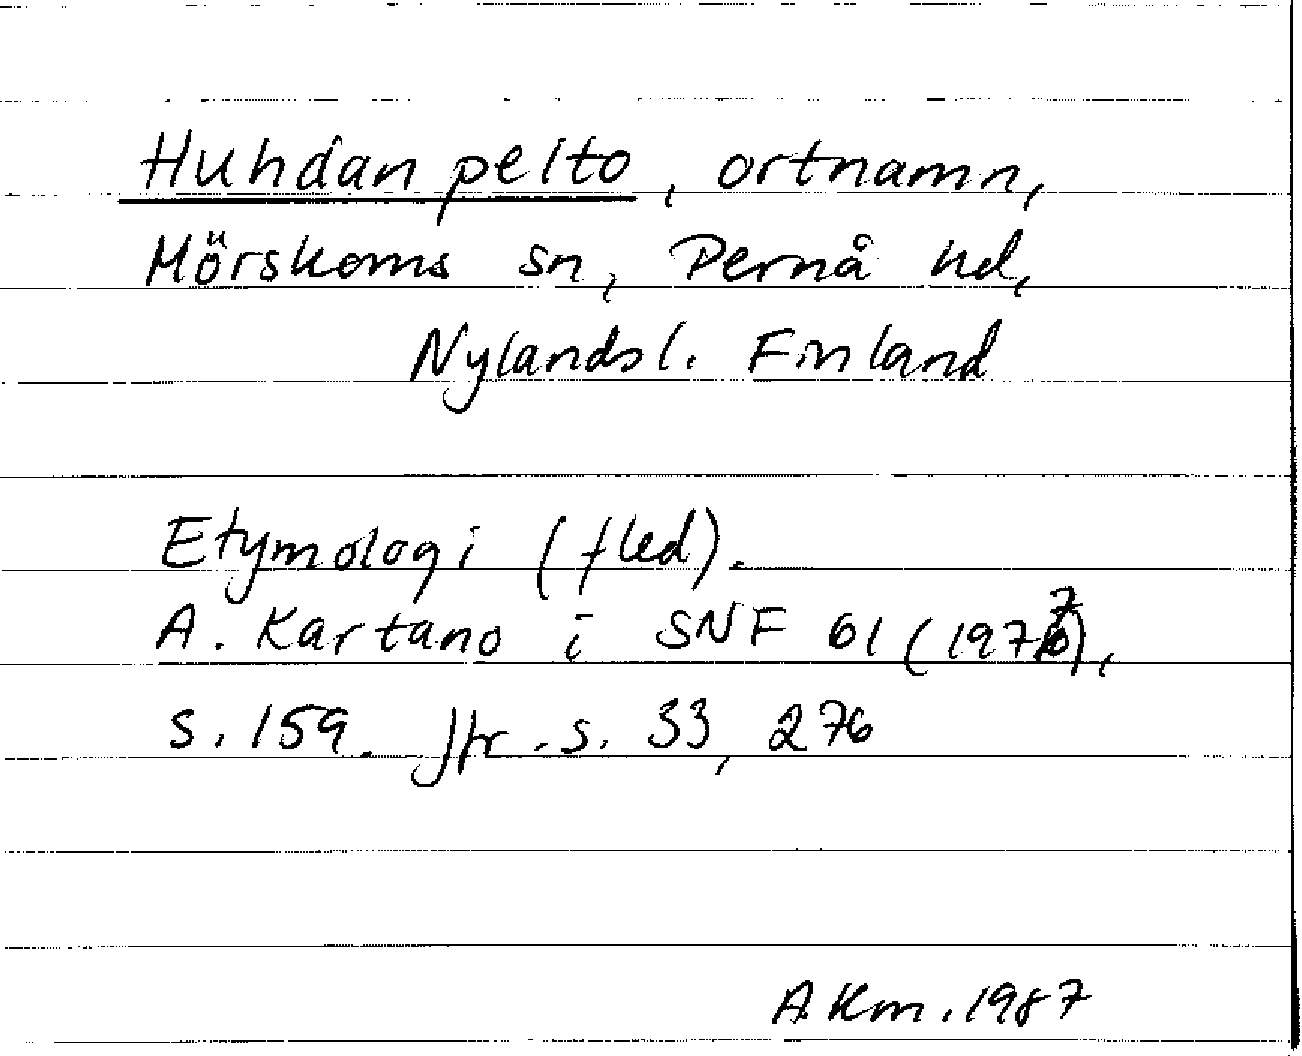 Huhdan pelto, ortnamn,
Mörskoms sn, Pernå hd,
Nylands l. Finland
Etymologi (fled).
A. Kartano i SNF 61 (1977),
s. 159. Jfr. s. 33, 276
A Km. 1987